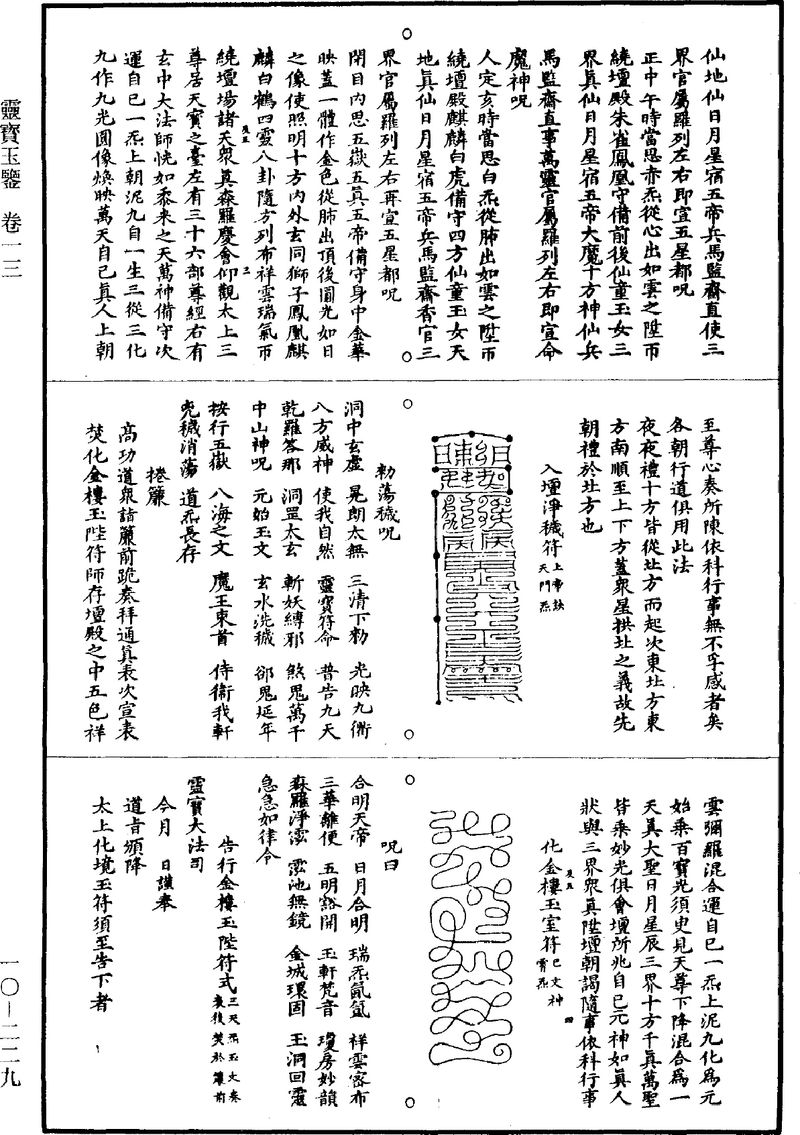 仙地仙日月星宿五帝兵馬監齋直使三
界官屬羅列左右即宣五星都呪
正中午時當思赤炁從心出如雲之陞帀
繞壇殿朱雀鳳凰守備前後仙童玉女三
界真仙日月星宿五帝大魔十方神仙兵
馬監齋直事萬靈官屬羅列左右即宣命
魔神呪
人定亥時當思白炁從肺出如雲之陞帀
繞壇殿麒麟白虎備守四方仙童玉女天
地真仙日月星宿五帝兵馬監齋香官三
界官屬羅列左右再宣五星都呪
閉目內思五嶽五真五帝備守身中金華
映蓋一體作金色從肺出頂後圓光如日
之像使照明十方內外玄同獅子鳳凰麒
麟白鶴四靈八卦隨方列布祥雲瑞氣帀
繞壇場諸天眾真森羅慶會仰觀太上三
尊居天寶之臺左有三十六部尊經右有
玄中大法師恍如黍米之天萬神備守次
運自己一炁上朝泥九自一生三從三化
九作九光圓像煥映萬天自己真人上朝
至尊心奏所陳依科行事無不孚感者矣
各朝行道俱用此法
夜夜禮十方皆從北方而起次東北方東
方南順至上下方蓋眾星拱北之義故先
朝禮於北方也
入壇淨穢符 上帝訣 天門炁
勑蕩穢呪
洞中玄虛 晃朗太無 三清下勑 光映九衢
八方威神 使我自然 靈寶符命 普告九天
乾羅答那 洞罡太玄 斬妖縛邪 煞鬼萬千
中山神呪 元始玉文 玄水洗穢 卻鬼延年
按行五嶽 八海之文 魔王束首 侍衛我軒
兇穢消蕩 道炁長存
捲簾
高功道眾詣簾前跪奏拜通真表次宣表
焚化金樓玉陛符師存壇殿之中五色祥
雲彌羅混合運自己一炁上泥九化為元
始乘百寶光須臾見天尊下降混合為一
天真大聖日月星辰三界十方千真萬聖
皆乘妙光俱會壇所兆自己元神如真人
狀與三界眾真陞壇朝謁隨事依科行事
化金樓玉室符
呪曰
合明天帝 日月合明 瑞炁氤氳 祥雲密布
三華離便 五明豁開 玉軒梵音 瓊房妙韻
森羅淨泓 靈池無鏡 金城環固 玉洞回靈
急急如律令
告行金樓玉陛符式
靈寶大法司
今月 日謹奉
道旨頒降
太上化境玉符須至告下者
靈寶玉鑒 卷一三
一〇—二二九